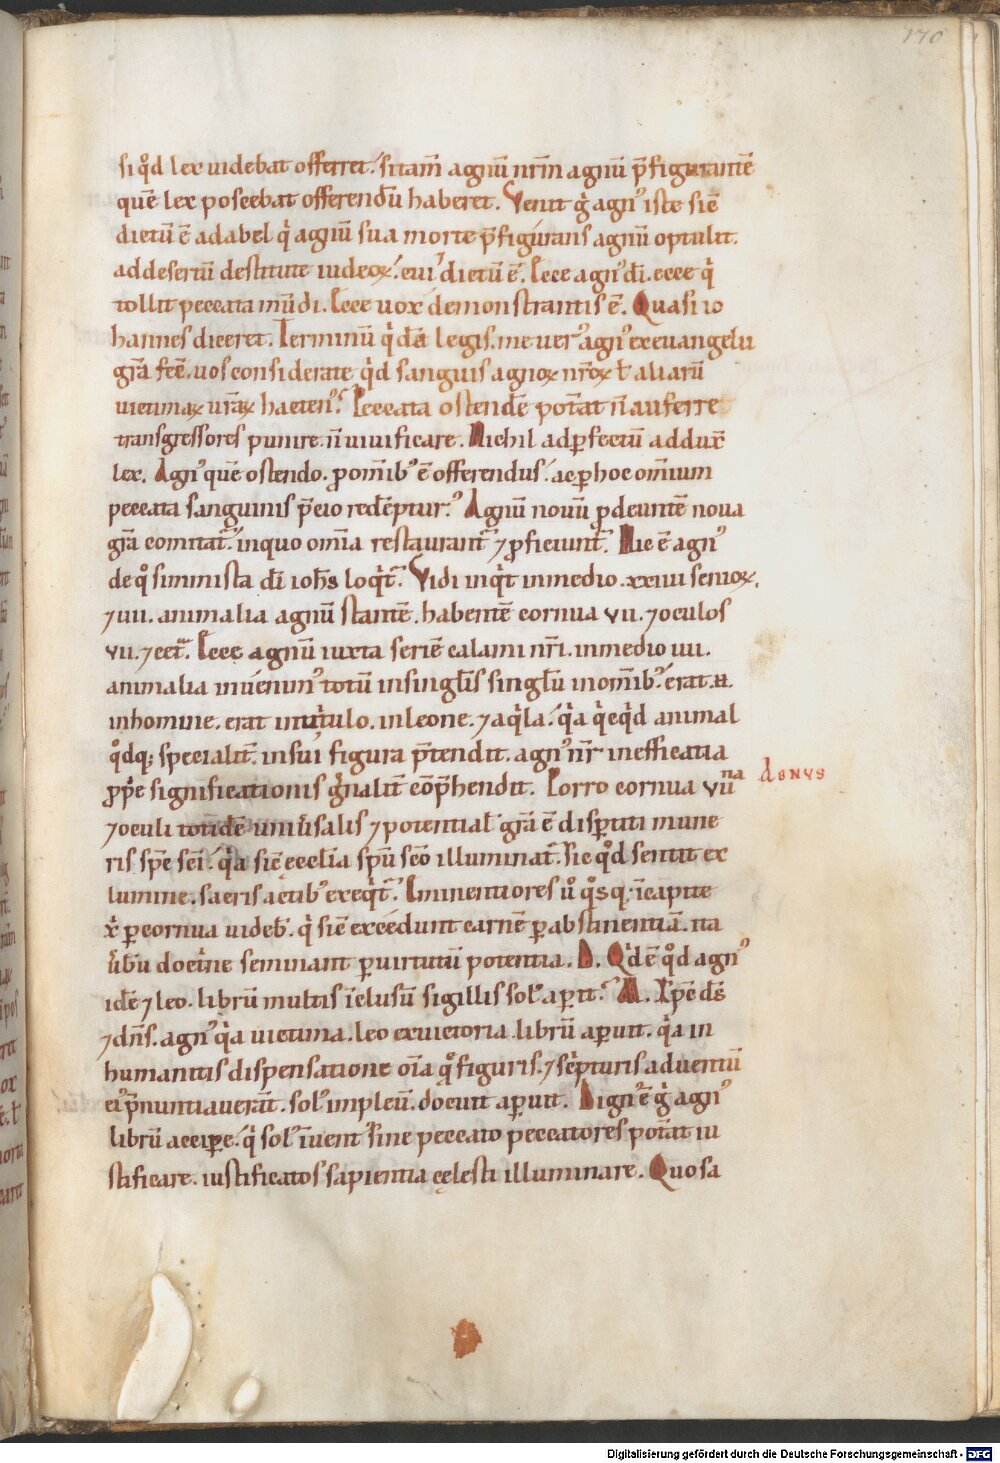 170
si qd lex uidebat offerret. si tam̄ agnū nr̄m agnū p̄figurantē
quē lex poscebat offerendū haberet. Venit g̊ agn᾽ iste sic̄
dictū ē ad abel q̇ agnū sua morte p̄figurans agnū optulit.
ad desertū destitute iudeoꝝ. cui᾽ dictū ē. Ecce agn᾽ dī. ecce q̇
tollit peccata mūdi. Ecce uox demonstrantis ē. Quasi io
hannes diceret. Terminū q̇dē legis. me uer᾽ agn᾽ ex euangelii
gr̄a fcē. uos considerate q̇d sanguis agnoꝝ nr̄oꝝ ł aliarū
uictimaꝝ ur̄aꝝ hacten᾽. Peccata ostendē pot̄at n̄ auferre
transgressores punire. n̄ uiuificare. Nichil ad ꝑfectū addux̄
lex. Agn᾽ quē ostendo. ꝓ om̄ib᾽ ē offerendus. ac ꝑ hoc om̄ium
peccata sanguinis p̄cio redēptur᾽. Agnū nouū ꝓdeuntē noua
gr̄a comitat᷑. in quo om̄ia restaurant᷑ ⁊ ꝓficiunt᷑. Hic ē agn᾽
de qͦ simmista dī ioh̄s loq̇t᷑. Vidi inq̇t in medio. xxiiii senioꝝ.
⁊ iiii. animalia agnū stantē. habentē cornua vii. ⁊ oculos
vii. ⁊ cet̄. Ecce agnū iuxta seriē calami nr̄i. in medio iiii.
animalia inuenim᾽ totū in singlīs singlū in om̄ib᾽. erat .n.
in homine. erat in uitulo. in leone. ⁊ aq̇la. q̇a q̇cq̇d animal
qͦdq; specialit̄. in sui figura p̄tendit. agn᾽ nr̄ in efficatia
ꝓp̄e significationis gn̄alit̄ cōp̄hendit. Porro cornua vii na
donvs
⁊ oculi totidē uniūsalis ⁊ potential᾽ gr̄a ē disꝑtiti mune
ris sp̄c sc̄i. q̇a sic̄ ęccłia spū sc̄o illuminat᷑. sic qͦd sentit ex
lumine. sacris actib᾽ exeq̇t᷑. Eminentiores ů qͦsq; ī capite
x̄ ꝑ cornua uideb᷑. q̇ sic̄ excedunt carnē ꝑ abstinentiā. ita
ūbū doctⁱne seminant ꝑ uirtutū potentia. D. Q̇d ē qͦd agn᾽
idē ⁊ leo. librū multis īclusū sigillis sol᾽ aꝑit. M. Xp̄c d̄s
⁊ dn̄s. agn᾽ q̇a uictima. leo ex uictoria librū aꝑuit. q̇a in
humanitis dispensatione oīa qͦ figuris. ⁊ scⁱpturis aduentū
ei᾽ p̄nuntiauerāt. sol᾽ impleū. docuit aꝑuit. Dign᾽ ē g̊ agn᾽
librū accipe. q̇ sol᾽ īuent᷑ sine peccato peccatores pot̄at iu
stificare. iustificatos sapientia cęlesti illuminare. Quo sa
Digitalisierung gefördert durch die Deutsche Forschungsgemeinschaft - DFG